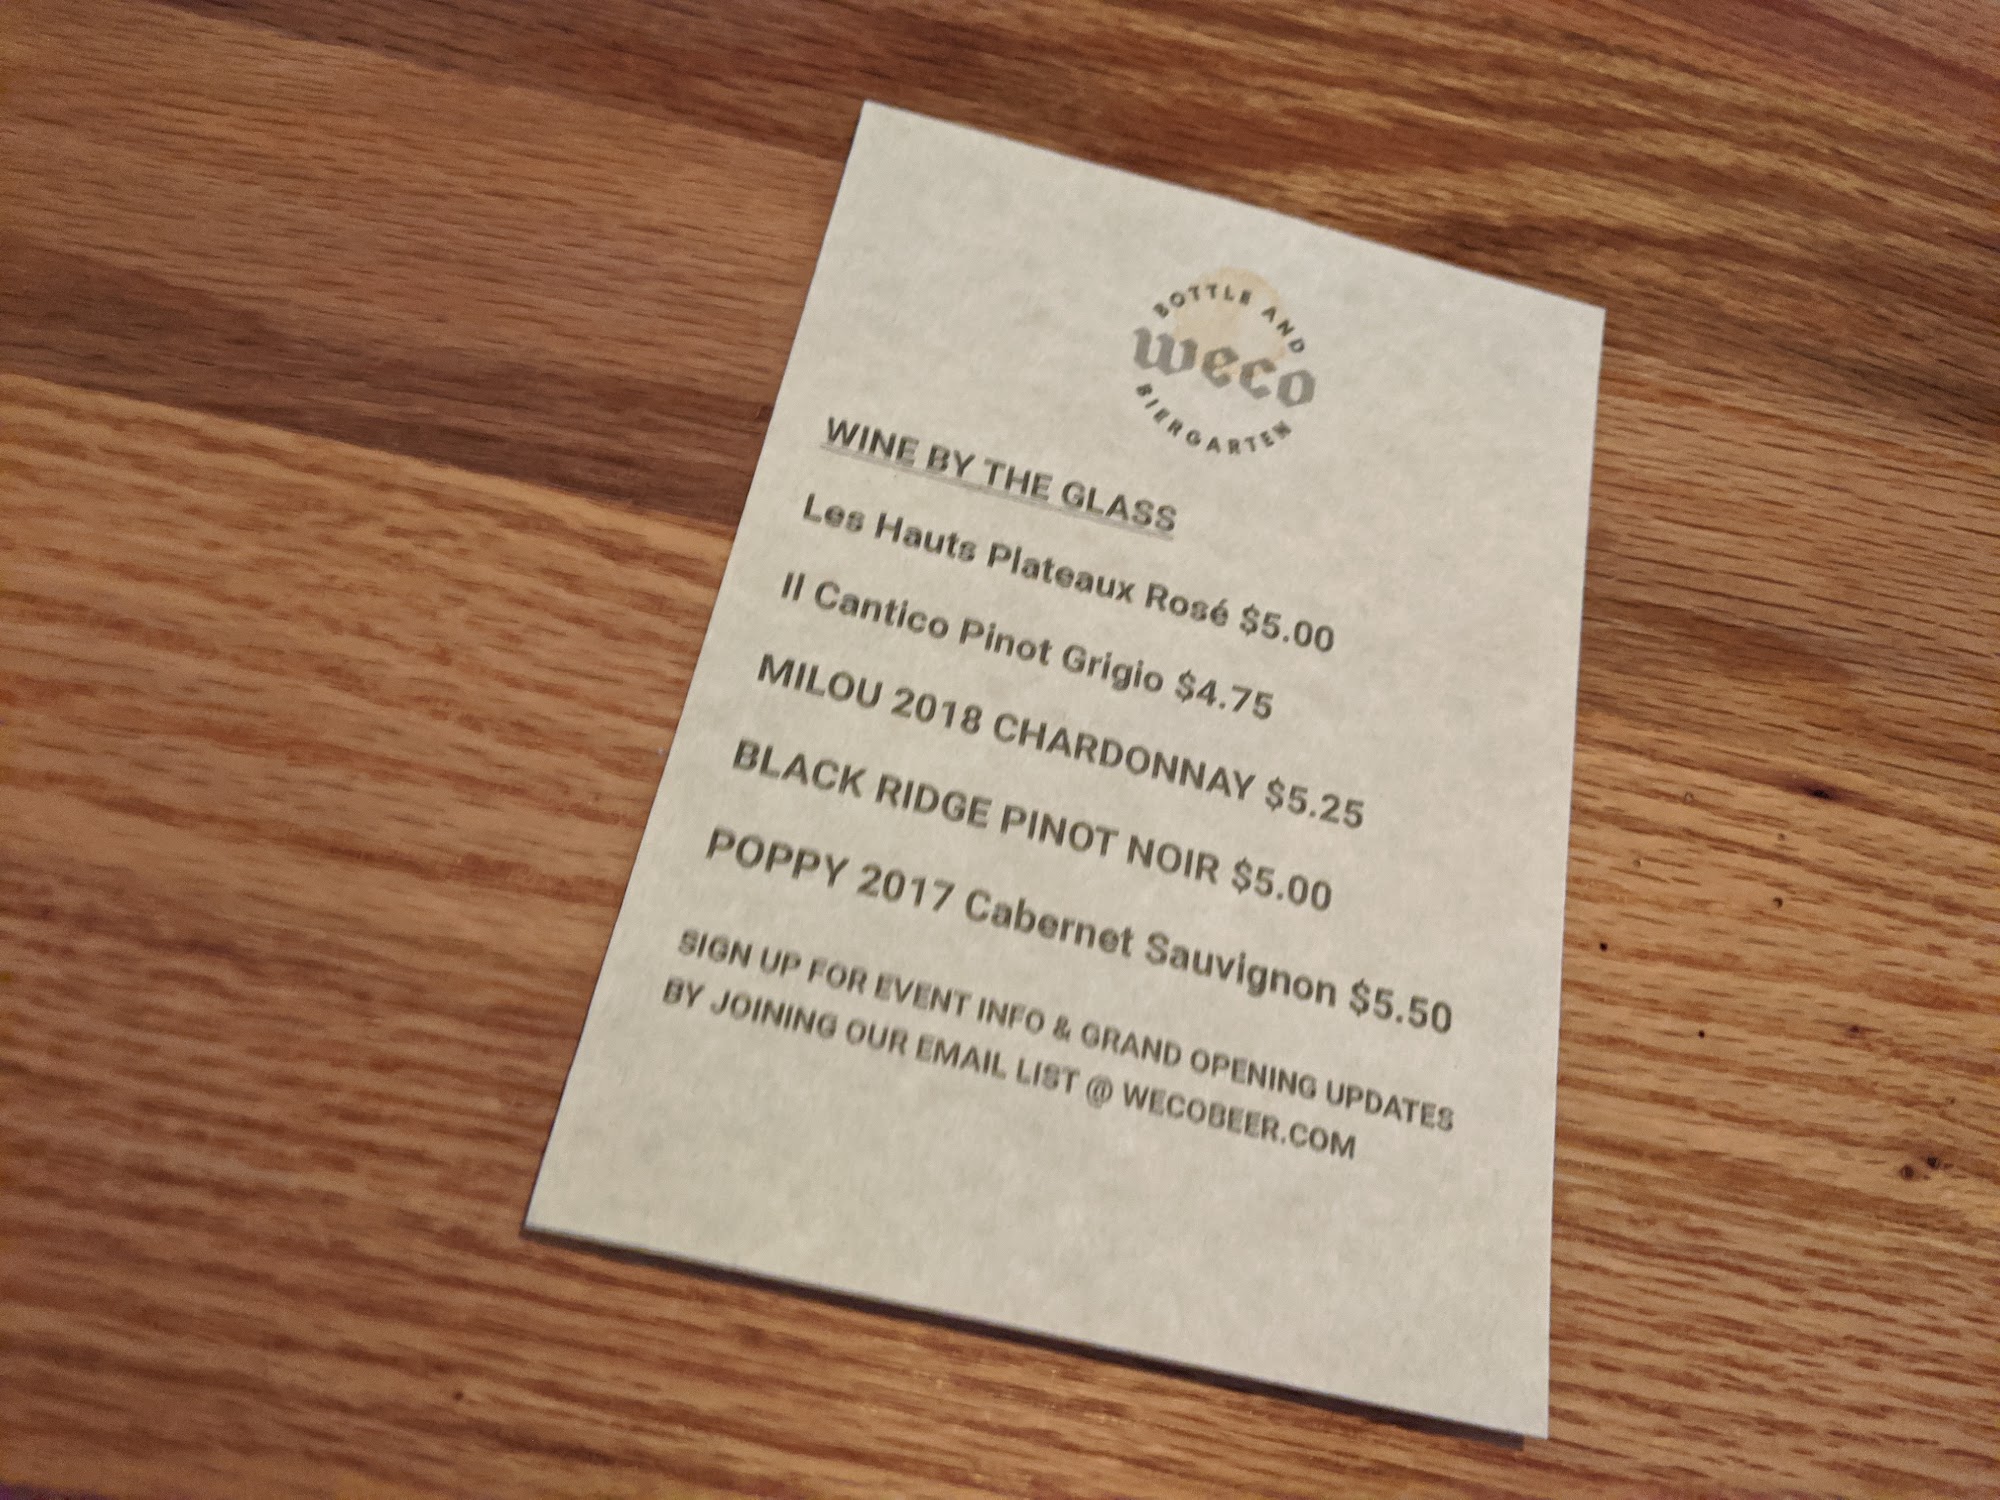 BOTTLE AND
weco
BIERGARTEN
WINE BY THE GLASS
Les Hauts Plateaux Rosé $5.00
Il Cantico Pinot Grigio $4.75
MILOU 2018 CHARDONNAY $5.25
BLACK RIDGE PINOT NOIR $5.00
POPPY 2017 Cabernet Sauvignon $5.50
SIGN UP FOR EVENT INFO & GRAND OPENING UPDATES
BY JOINING OUR EMAIL LIST @ WECOBEER.COM